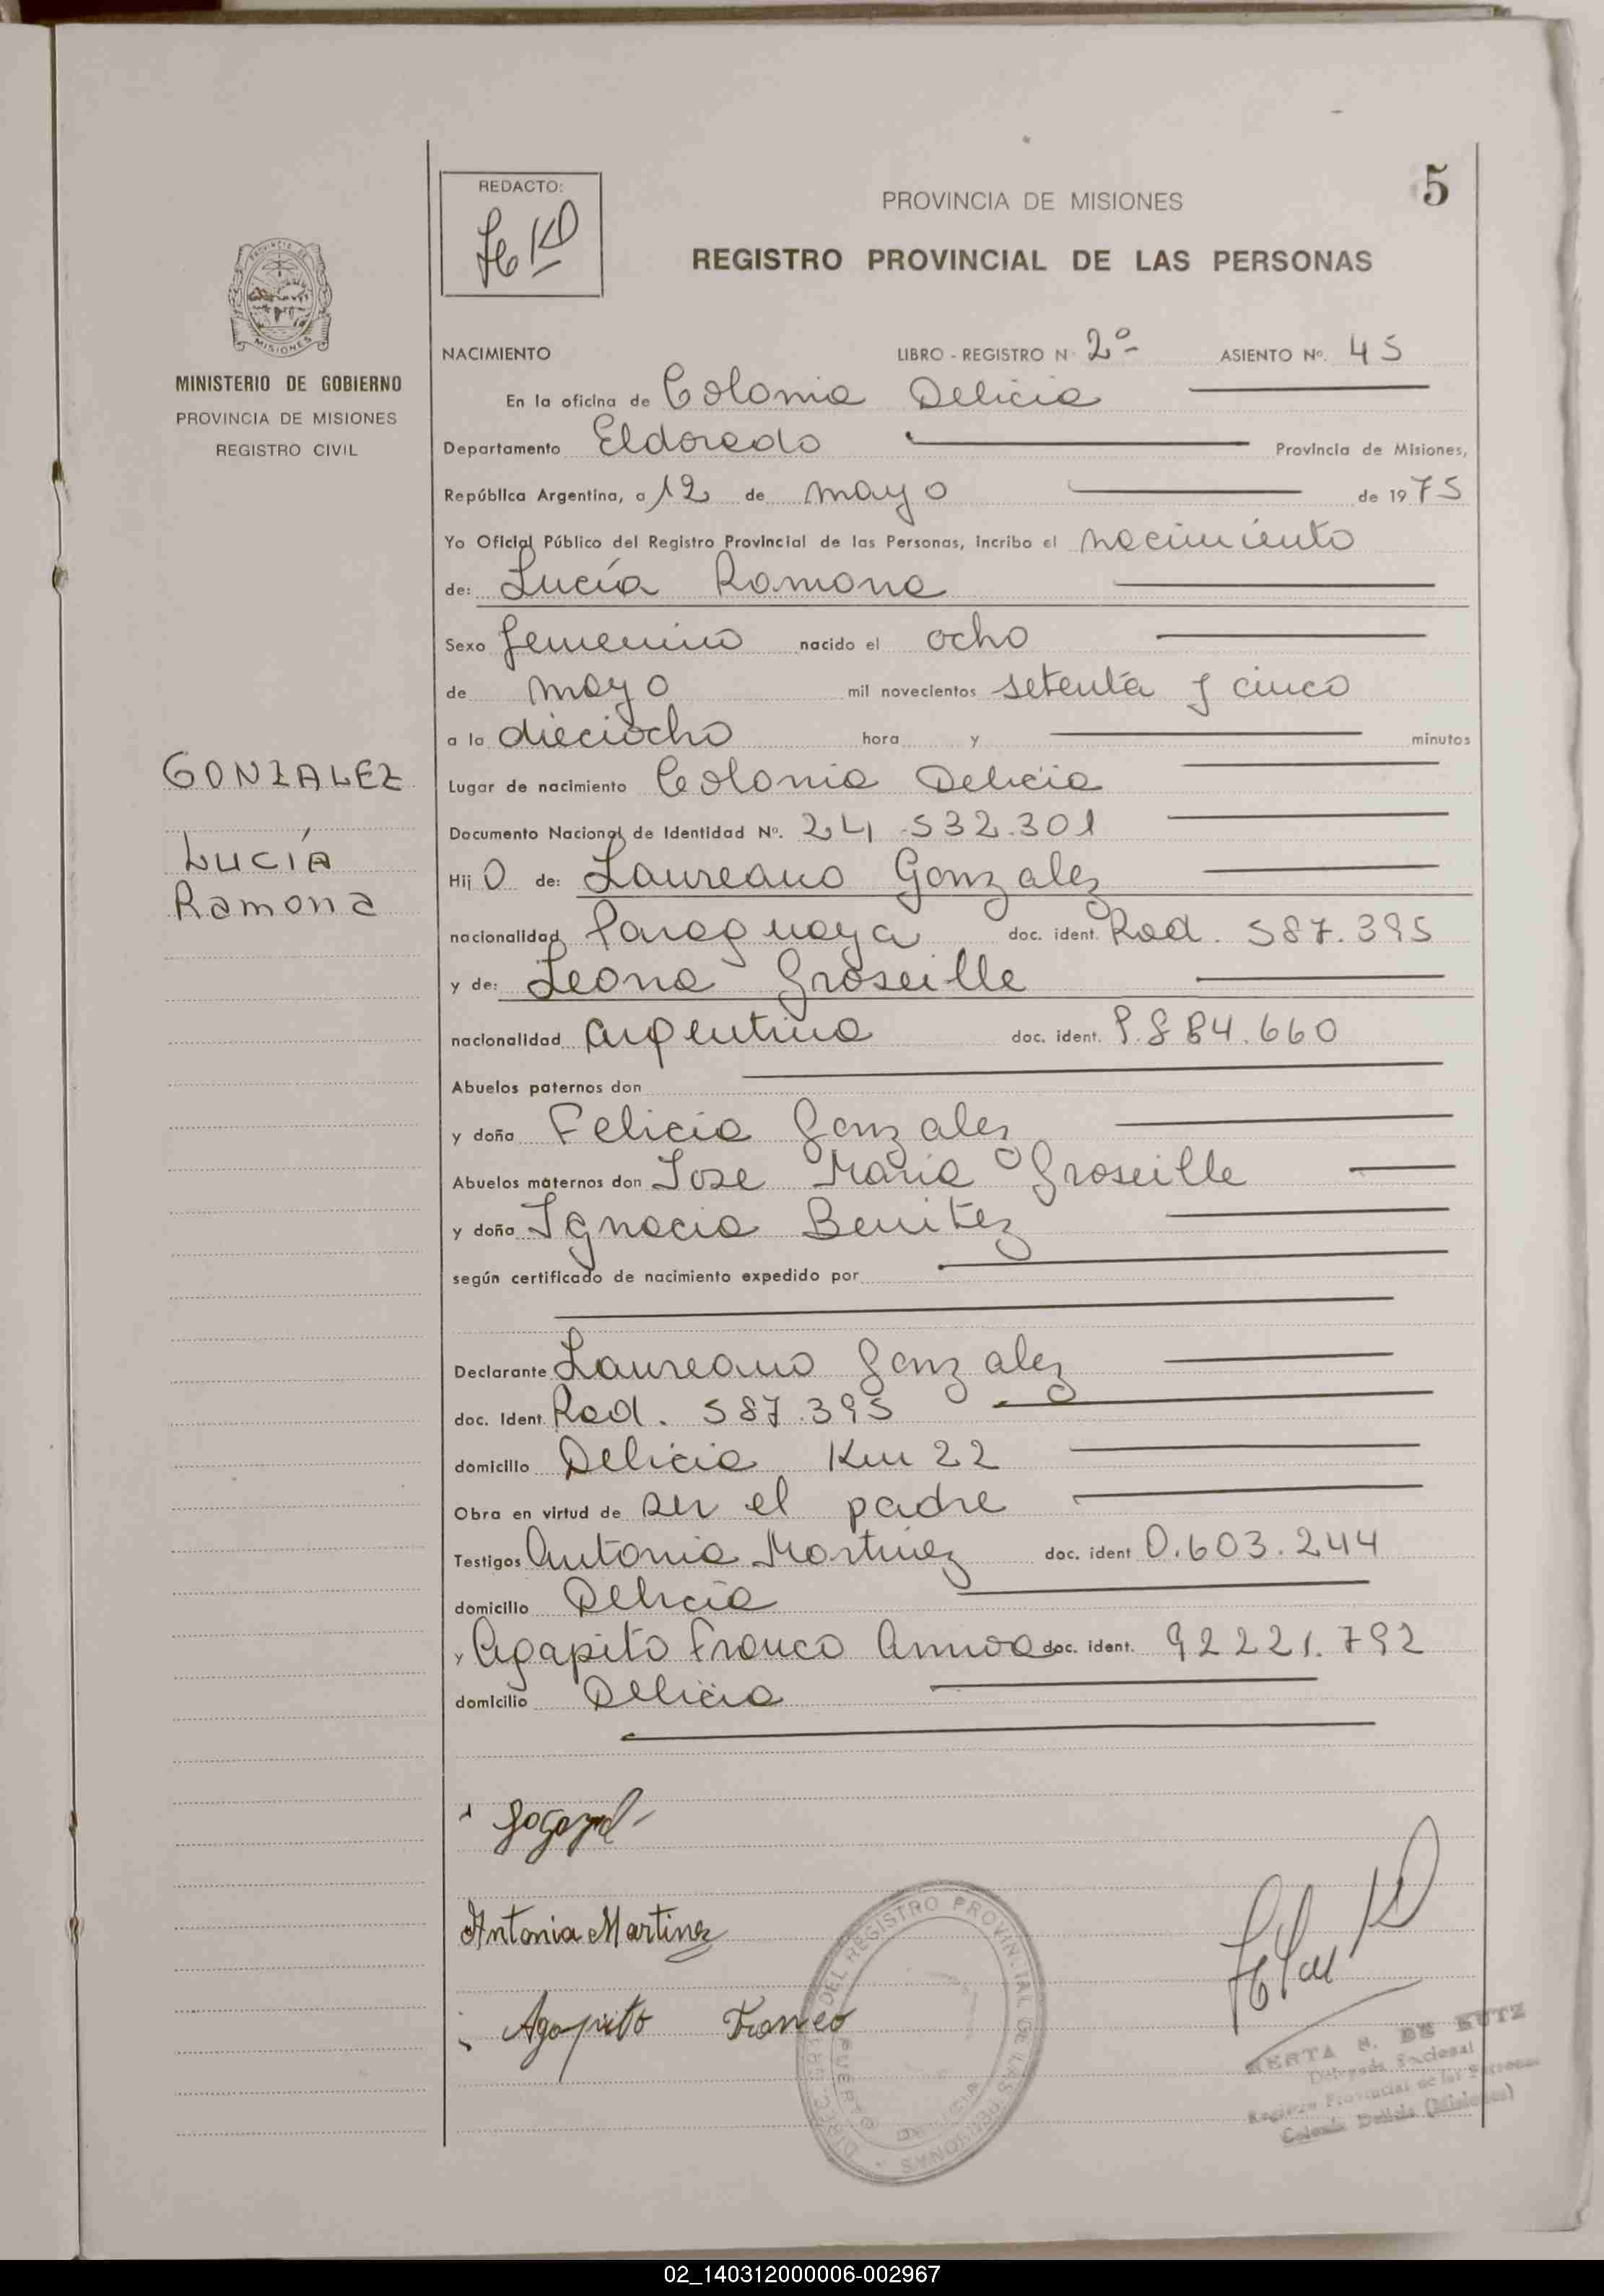 5
REDACTO:
PROVINCIA DE MISIONES
REGISTRO PROVINCIAL DE LAS PERSONAS
MISIONES
MINISTERIO DE GOBIERNO
PROVINCIA DE MISIONES
REGISTRO CIVIL
NACIMIENTO LIBRO - REGISTRO N 2º ASIENTO Nº. 45
En la oficina de Colonia Delicia
Departamento Eldorado Provincia de Misiones,
República Argentina, a 12 de mayo de 1975
Yo Oficial Público del Registro Provincial de las Personas, incribo el nacimiento
de: Lucía Ramona
Sexo femenino nacido el ocho
de mayo mil novecientos setenta y cinco
a la dieciocho hora y minutos
GONZALEZ
Lucía
Ramona
Lugar de nacimiento Colonia Delicia
Documento Nacional de Identidad Nº. 24.532.301
Hij o de: Laureano Gonzalez
nacionalidad Paraguaya doc. ident. Rad. 587.395
y de: Leona Groseille
nacionalidad argentina doc. ident. 884.660
Abuelos paternos don
y doña Felicia Gonzalez
Abuelos maternos don Jose Maria Groseille
y doña Ignacia Benitez
según certificado de nacimiento expedido por
Declarante Laureano Gonzalez
doc. Ident. Rad. 587.395
domicilio Delicia Km 22
Obra en virtud de ser el padre
Testigos Antonia Martinez doc. ident 0.603.244
domicilio Delicia
y Agapito Franco doc. ident. 92221.792
domicilio Delicia
Antonia Martinez
Agapito Franco
DEL REGISTRO PROVINCIAL DE LAS PERSONAS
PUERTO DELICIA
HERTA S. DE KUTZ
Delegada Seccional
Registro Provincial de las Personas
Colonia Delicia (Misiones)
02_140312000006-002967